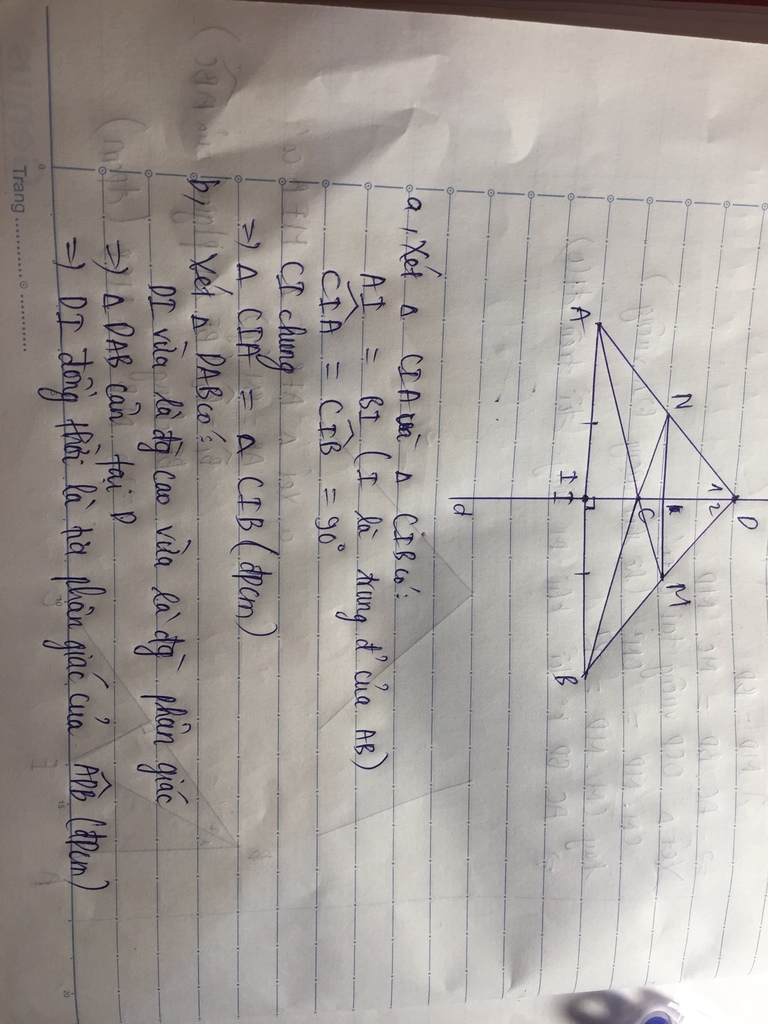 D
1 2
N
M
C
A
I
B
d
a, Xét Δ CIA và Δ CIB có:
AI = BI (I là trung đ' của AB)
CIA = CIB = 90°
CI chung
=> Δ CIA = Δ CIB (đpcm)
b, Xét Δ DAB có:
DI vừa là đg cao vừa là đg phân giác
=> Δ DAB cân tại D
=> DI đồng thời là tia phân giác của ADB (đpcm)
Trang
15
20